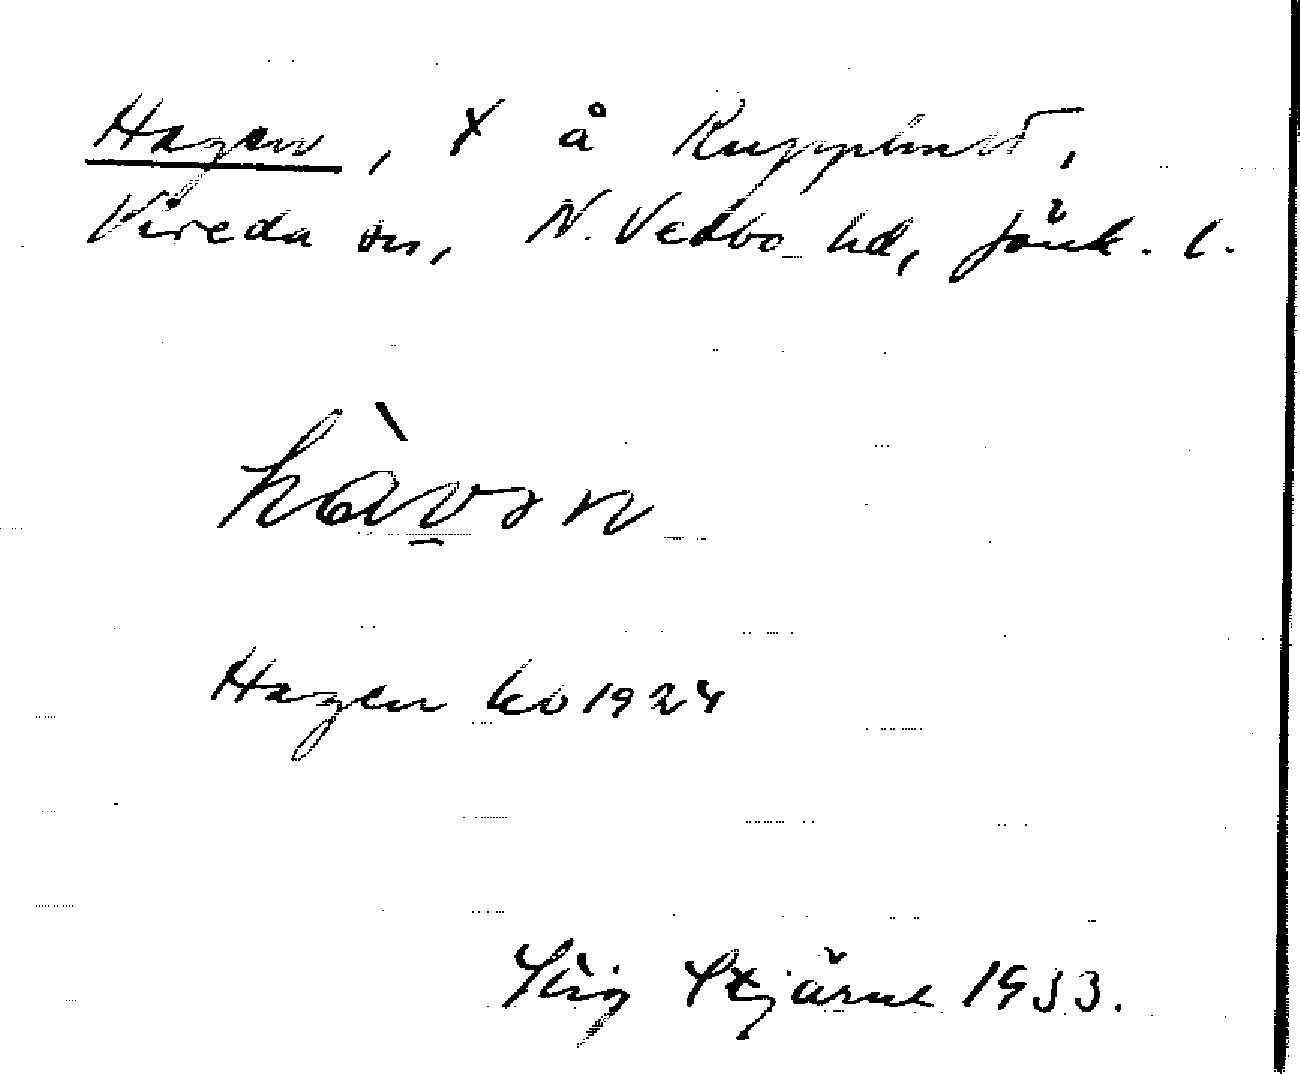 Hagen, x å Rupplund,
Vireda sn, N. Vedbo hd, Jönk. l.
hàvan
Hagen kb 1924
Stig Stjärne 1933.